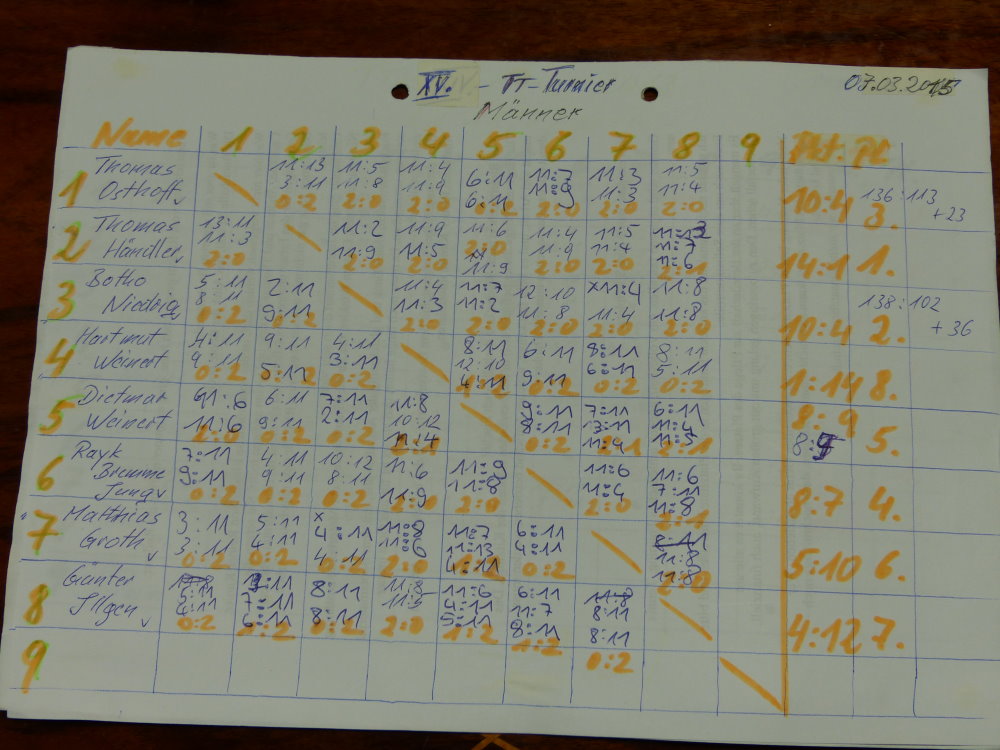 XV. - TT-Turnier
07.03.2015
Männer
Name 1 2 3 4 5 6 7 8 9 Pkt. Pl.
1 Thomas Osthoff
11:13 11:5 11:4 6:11 11:3 11:5
3:11 11:8 11:9 11:9 11:3 11:4
6:11
0:2 2:0 2:0 0:2 2:0 2:0 2:0
10:4 3. 136:113 +23
2 Thomas Händler
13:11 11:2 11:9 11:6 11:4 11:5
11:3 11:9 11:5 11:9 11:9 11:4 11:7
11:6
2:0 2:0 2:0 2:0 2:0 2:0 2:1
14:1 1.
3 Botho Niedrig
5:11 2:11 11:4 11:7 12:10 x11:4 11:8
8:11 9:11 11:3 11:2 11:8 11:4 11:8
0:2 0:2 2:0 2:0 2:0 2:0 2:0
10:4 2. 138:102 +36
4 Hartmut Weinert
4:11 9:11 4:11 8:11 6:11 8:11 8:11
9:11 5:11 3:11 12:10 9:11 6:11 5:11
4:11
0:2 0:2 0:2 1:2 0:2 0:2 0:2
1:14 8.
5 Dietmar Weinert
11:6 6:11 7:11 11:8 9:11 7:11 6:11
11:6 9:11 2:11 10:12 8:11 13:11 11:4
11:4 11:9 11:5
2:0 0:2 0:2 0:2 2:1
8:9 5.
8:9
6 Rayk Bremme Jung
7:11 4:11 10:12 11:6 11:9 11:6 11:6
9:11 9:11 8:11 11:9 11:8 11:4 7:11
11:8
0:2 0:2 0:2 2:0 2:0 2:0 2:1
8:7 4.
7 Matthias Groth
3:11 5:11 x 4:11 11:8 11:7 6:11 8:11
3:11 4:11 4:11 11:6 11:13 4:11 11:8
4:11 11:8
0:2 0:2 0:2 2:0 1:2 0:2 2:0
5:10 6.
8 Günter Illgen
5:11 8:11 11:8 11:6 6:11 11:8
4:11 7:11 8:11 11:5 4:11 11:7 8:11
6:11 5:11 8:11 8:11
0:2 1:2 0:2 2:0 1:2 1:2 0:2
4:12 7.
9